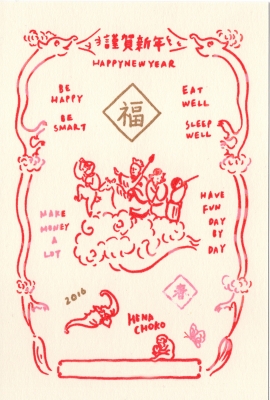 謹賀新年
HAPPY NEW YEAR
BE
HAPPY
BE
SMART
福
EAT
WELL
SLEEP
WELL
MAKE
MONEY
A
LOT
HAVE
FUN
DAY
BY
DAY
2016
春
HENA
CHOKO